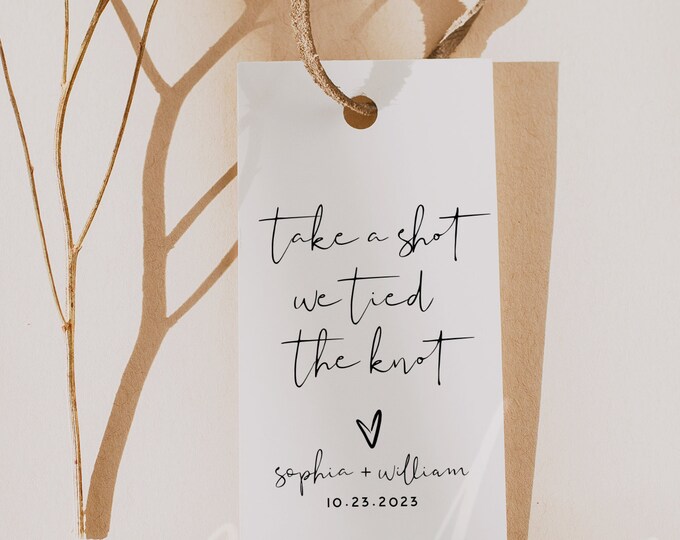 take a shot
we tied
the knot
sophia + william
10.23.2023